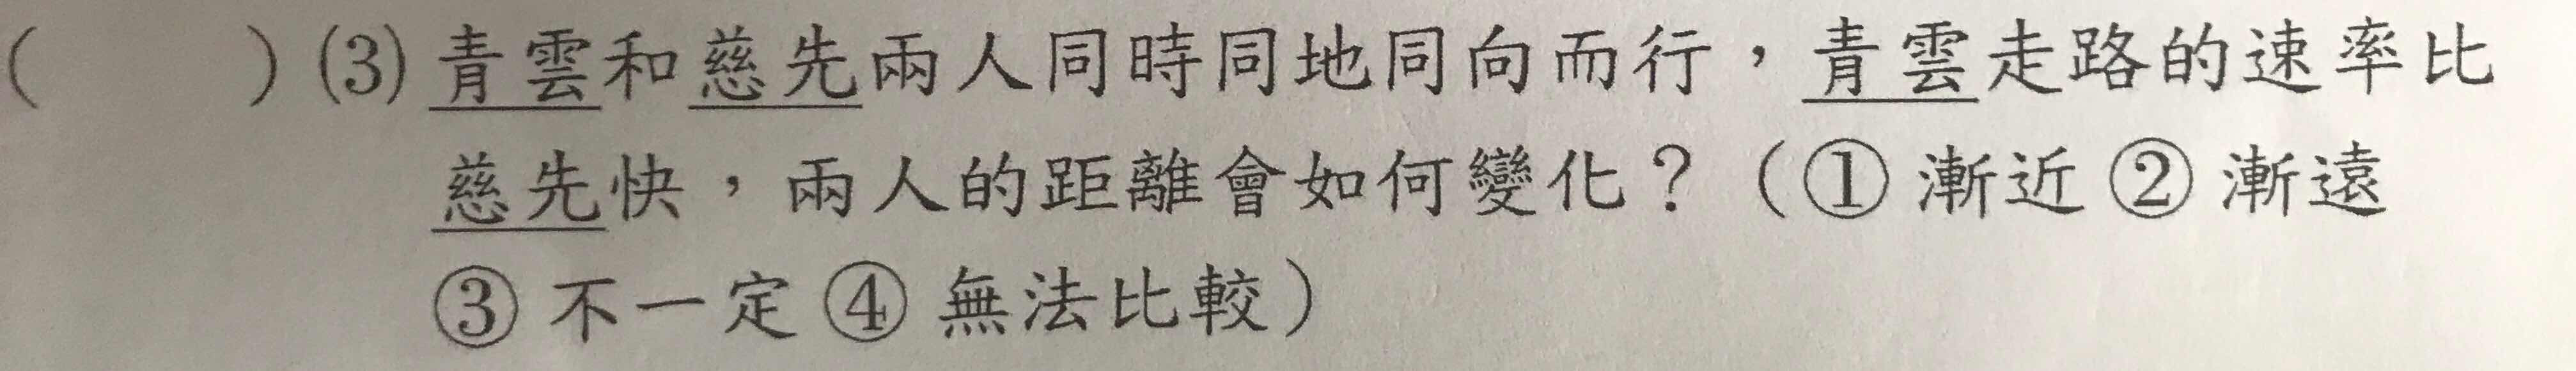 (　　)(3)青雲和慈先兩人同時同地同向而行，青雲走路的速率比
慈先快，兩人的距離會如何變化？（① 漸近 ② 漸遠
③ 不一定 ④ 無法比較）